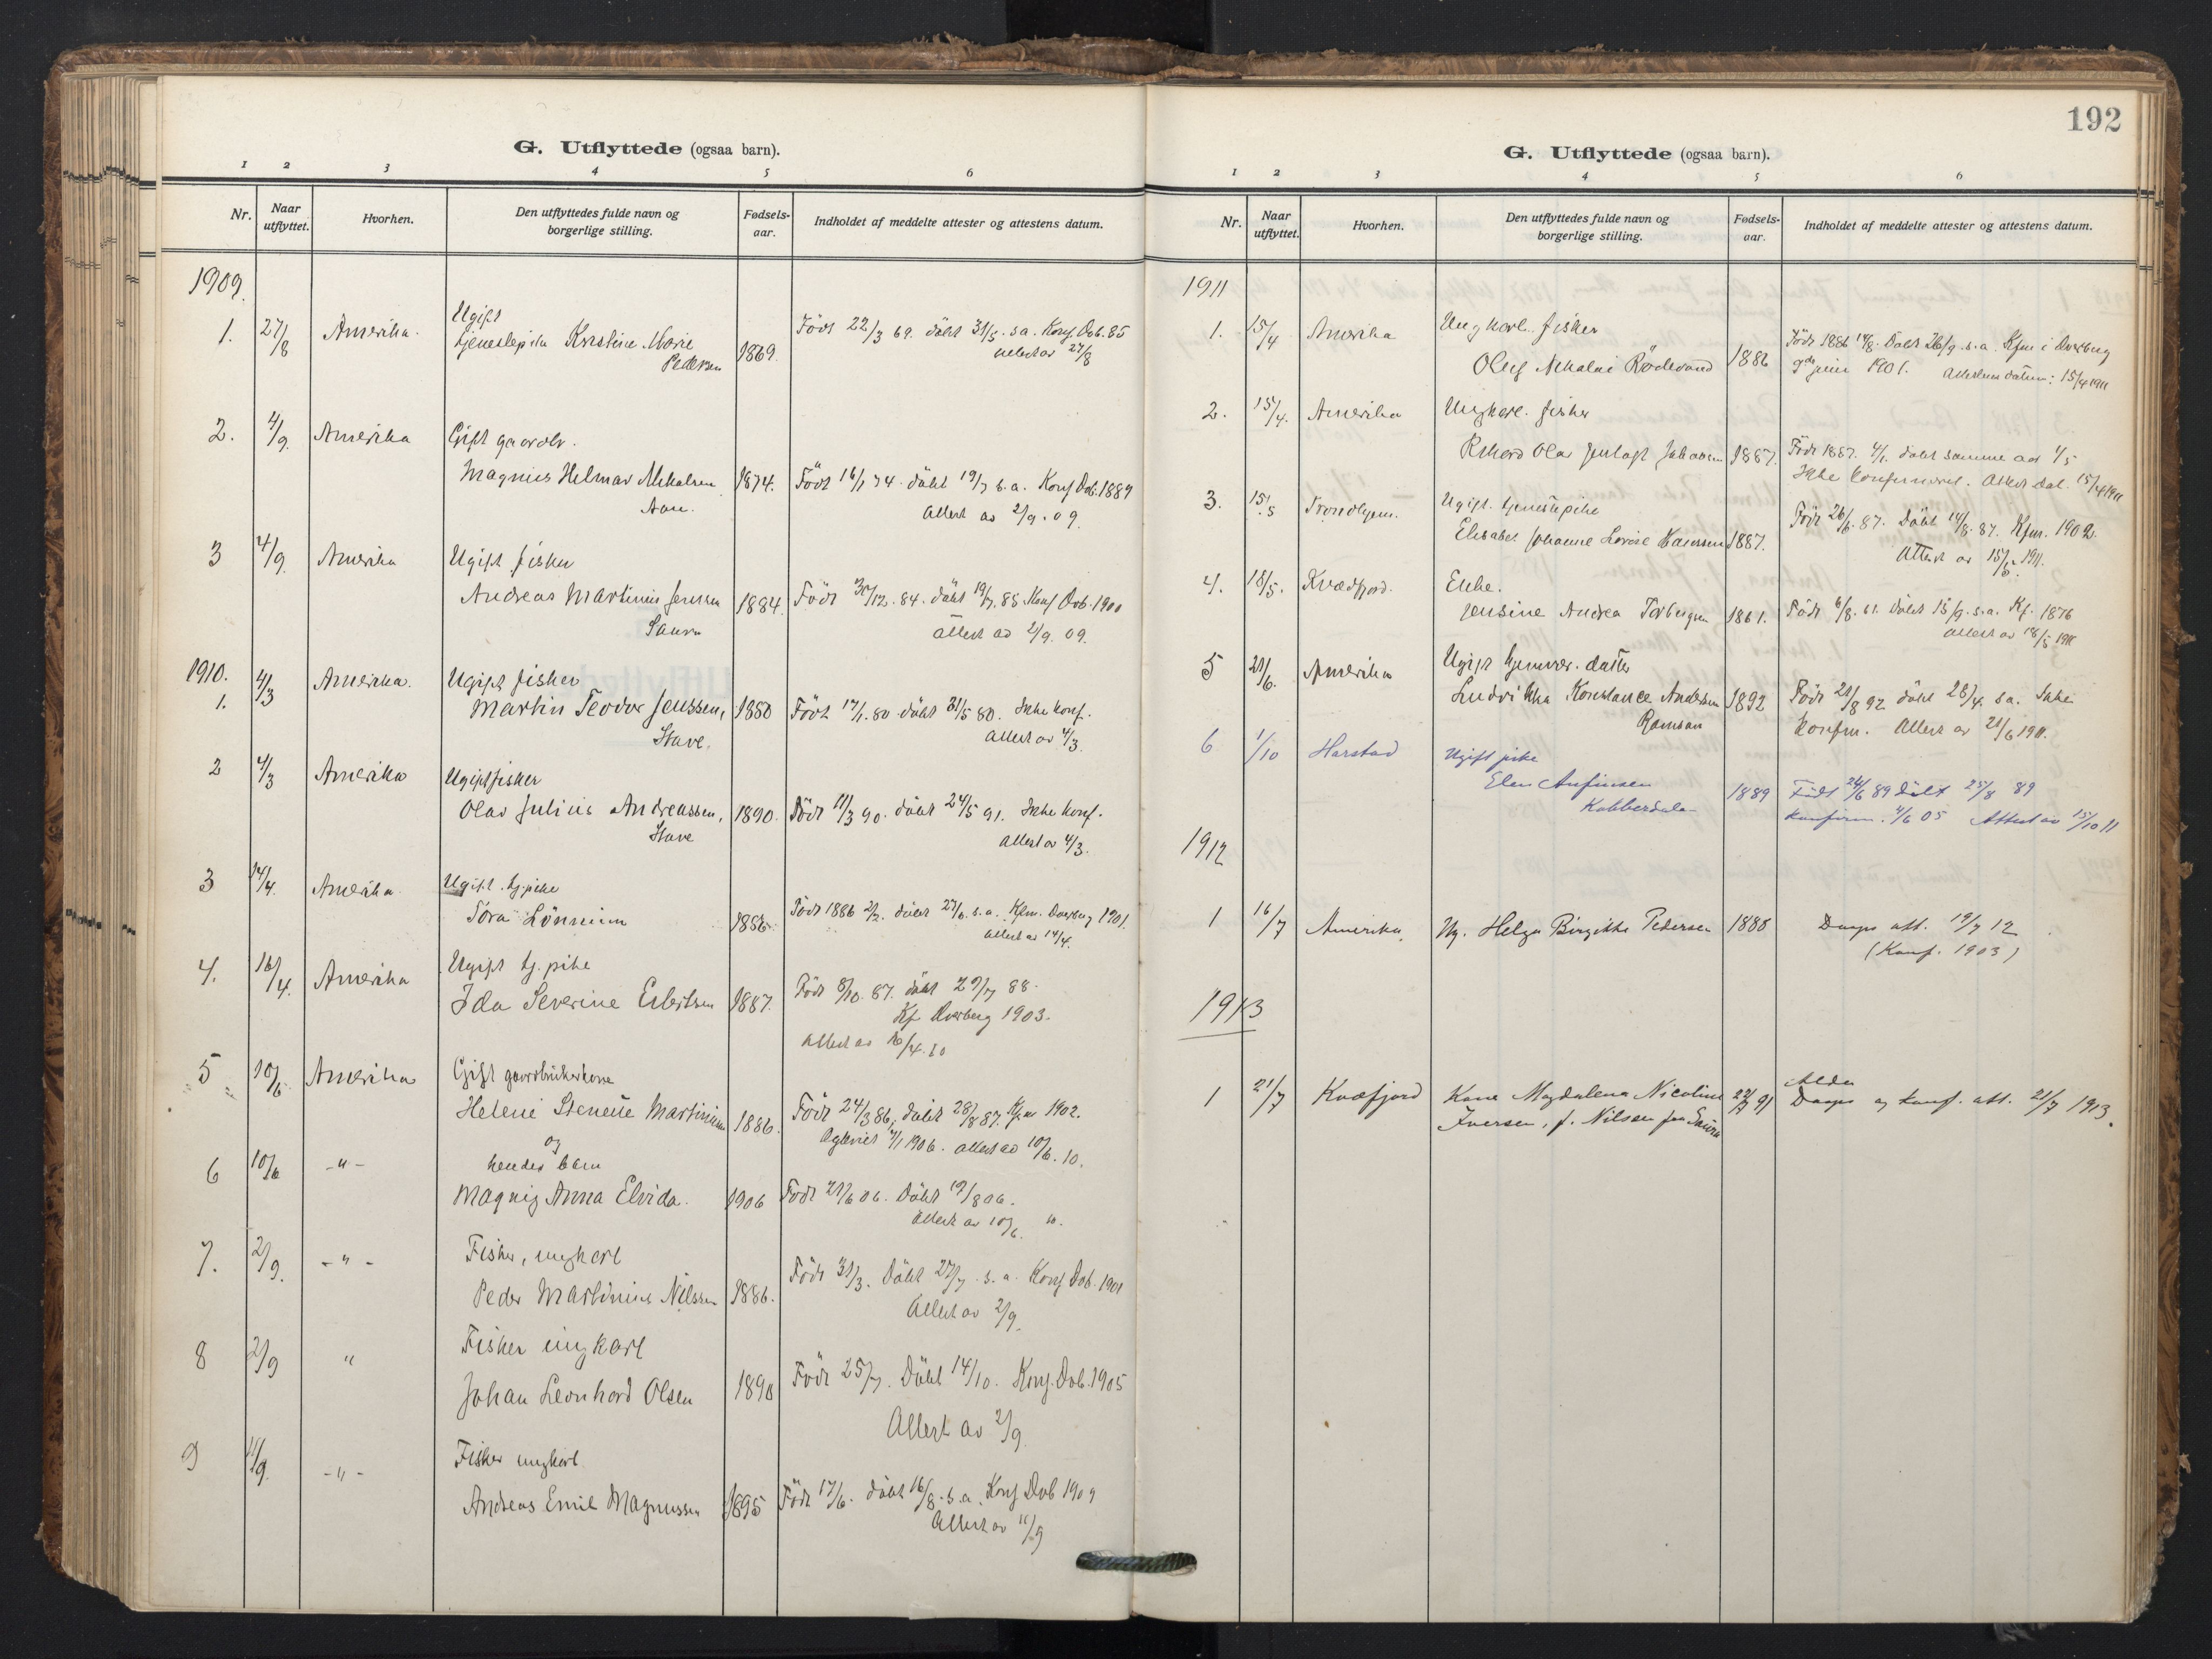 G. Utflyttede (ogsaa barn).
1 2 3 4 5 6
Nr. Naar utflyttet. Hvorhen. Den utflyttedes fulde navn og borgerlige stilling. Fødsels-aar. Indholdet af meddelte attester og attestens datum.
1909.
1. 27/8 Amerika. Ugift
tjenestepike Kristine Marie
Pedersen 1869. Född 22/3 69. döbt 31/5. s.a. Konf. Dob. 85
attest av 27/8
2. 4/9. Amerika Gift gaardbr.
Magnus Helmar Mikalsen 1874. Född 16/1 74. döbt 19/7 s.a. Konf Dob. 1889
Aan. Attest av 2/9. 09.
3 4/9. Amerika Ugift fisker
Andreas Martinus Jensen 1884. Född 30/12. 84. döbt 19/7. 85. Konf Dob. 1900
Saura attest av 4/9. 09.
1910.
1. 4/3 Amerika. Ugift fisker
Martin Teodor Jenssen, 1880 Född 17/1. 80 döbt 31/5 80. Ikke konf.
Stave. attest av 4/3.
2 4/3 Amerika Ugift fisker
Olav Julius Andreassen, 1890. Född 11/3 90. döbt 24/5 91. Ikke konf.
Stave attest av 4/3.
3 14/4. Amerika. Ugift. tj.pike
Tora Lönnum 1886. Född 1886 2/2. döbt 27/6. s.a. Kfm. Dverberg 1901.
attest av 14/4.
4. 16/4. Amerika Ugift tj. pike
Ida Severine Edertsen 1887. Född 8/10. 87. döbt 29/7 88.
Kf Dverberg 1903.
attest av 16/4. 10
5 10/6. Amerika Gift gaardbrukerkone
Helene Stenette Martinussen 1886. Född 24/3 86, döbt 28/8 87. Kfm 1902.
og Ægteviet 4/1 1906. attest av 10/6. 10.
6 10/6 -"- hendes barn
Magnig Anna Elvida. 1906 Född 21/6 06. Döbt 19/8 06.
attest av 10/6. 10.
7. 2/9. -"- Fisker, ungkarl
Peder Martinius Nilssen 1886. Född 31/3. Döbt 27/7. s.a. Konf Dob. 1901
Attest av 2/9.
8 2/9 " Fisker ungkarl
Johan Leonhard Olsen 1890 Född 25/7. Döbt 14/10. Konf. Dob. 1905
Attest av 2/9
9 11/9. -"- Fisker ungkarl
Andreas Emil Magnussen 1895 Född 17/6. döbt 16/8. s.a. Konf Dob 1909
Attest av 11/9
192
G. Utflyttede (ogsaa barn).
1 2 3 4 5 6
Nr. Naar utflyttet. Hvorhen. Den utflyttedes fulde navn og borgerlige stilling. Fødsels-aar. Indholdet af meddelte attester og attestens datum.
1911
1. 15/4 Amerika Ungkarl. fisker
Oluf Nikolai Rödesand 1886 Född 1886 14/8. Döbt 26/9. s.a. Kfm i Dverberg
9de juni 1901. Attestens datum: 15/4 1911
2. 15/4. Amerika Ungkarl. fisker
Rikard Olav Johansen 1887. Född 1887. 4/1. döbt samme aar 1/5
Ikke konfirmeret. Attest dat. 15/4 1911
3. 15/5 Trondhjem. Ugift. tjenestepike
Elisabet Johanne Lovise 1887. Född 26/6. 87. Döbt 14/8. 87. Kfm. 1902.
Attest av 15/5. 1911.
4. 18/5. Kvædfjord. Enke.
Jensine Andrea Torbergsen 1861. Född 6/8. 61. Döbt 15/9. s.a. Kf. 1876
attest av 18/5 1911
5 21/6. Amerika Ugift hjemmev. datter
Ludvikka Konstance Andersen 1892 Född 21/8 92 döbt 28/4. s.a. Ikke
Ramsaa konfm. Attest av 21/6 1911.
6 1/10 Harstad Ugift pike
Elen Anfinsen 1889 Födt 24/6 89 Döbt 25/8 89
Kobberdalen konfirm. 4/6 05 Attest av 15/10 11
1912
1 16/7 Amerika. Ug. Helga Birgitte Pedersen 1888 Daaps att. 19/7 12
(Konf. 1903)
1913
1 21/7 Kvæfjord Kone Magdalena Nicoline 22/7 91 Alder
Daaps og konf. att. 21/7 1913.
Iversen, f. Nilsen fra Saura